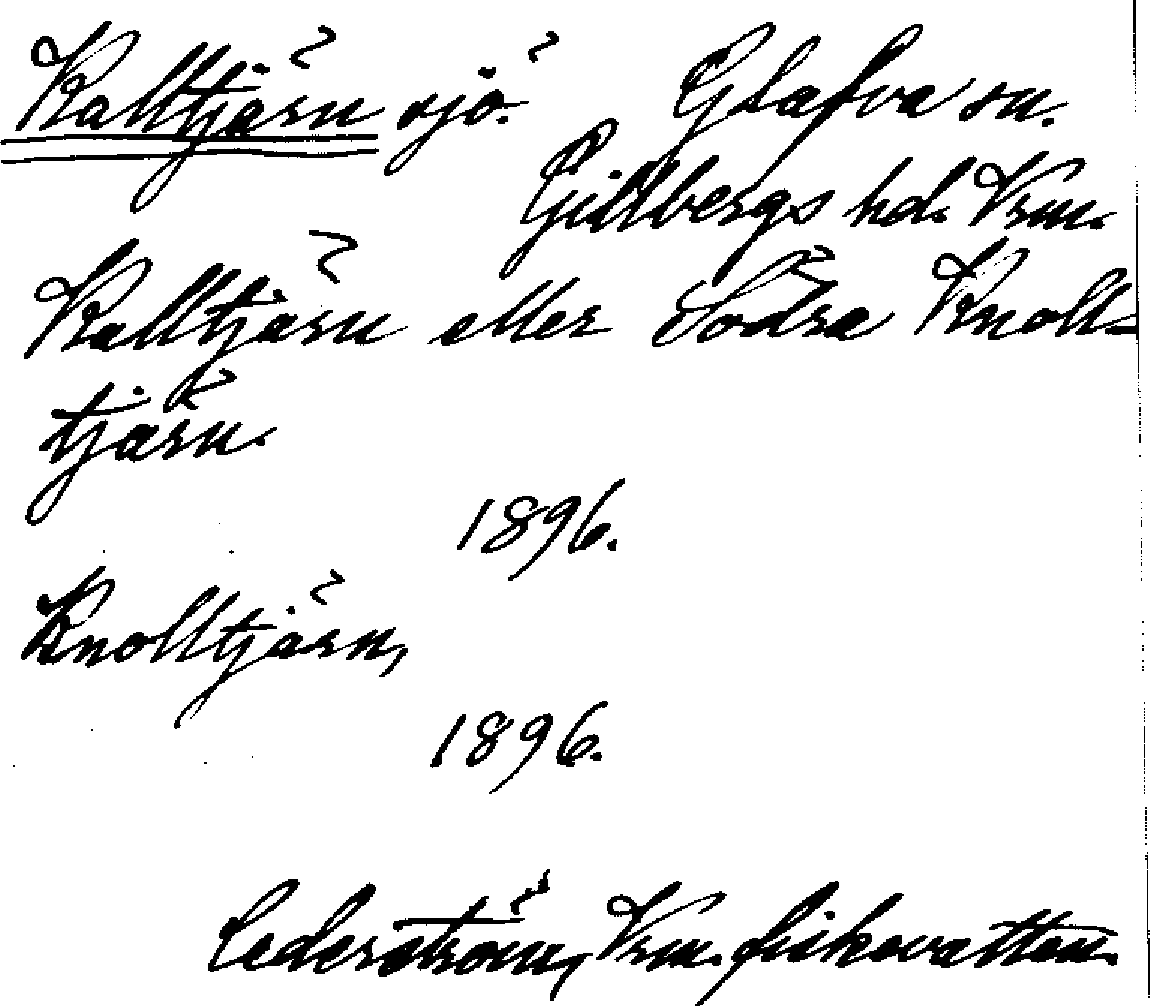 Kalltjärn sjö. Glafva sn.
Gillbergs hd. Vrm.
Kalltjärn eller Södra Knoll-
tjärn.
1896.
Knolltjärn,
1896.
Cederström, Vrm. fiskevatten.